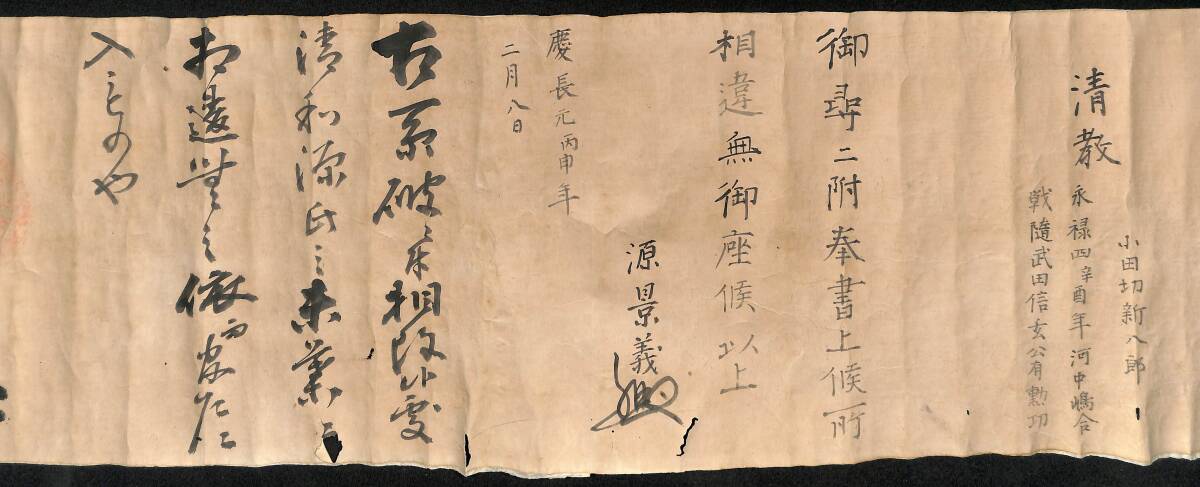 小田切新八郎
清教 永禄四辛酉年河中嶋合
戦隨武田信玄公有勲功
御尋ニ附奉書上候所
相違無御座候以上
源景義
慶長元丙申年
二月八日
古系破相改候處
清和源氏之末葉ニ
相違無之依而
入